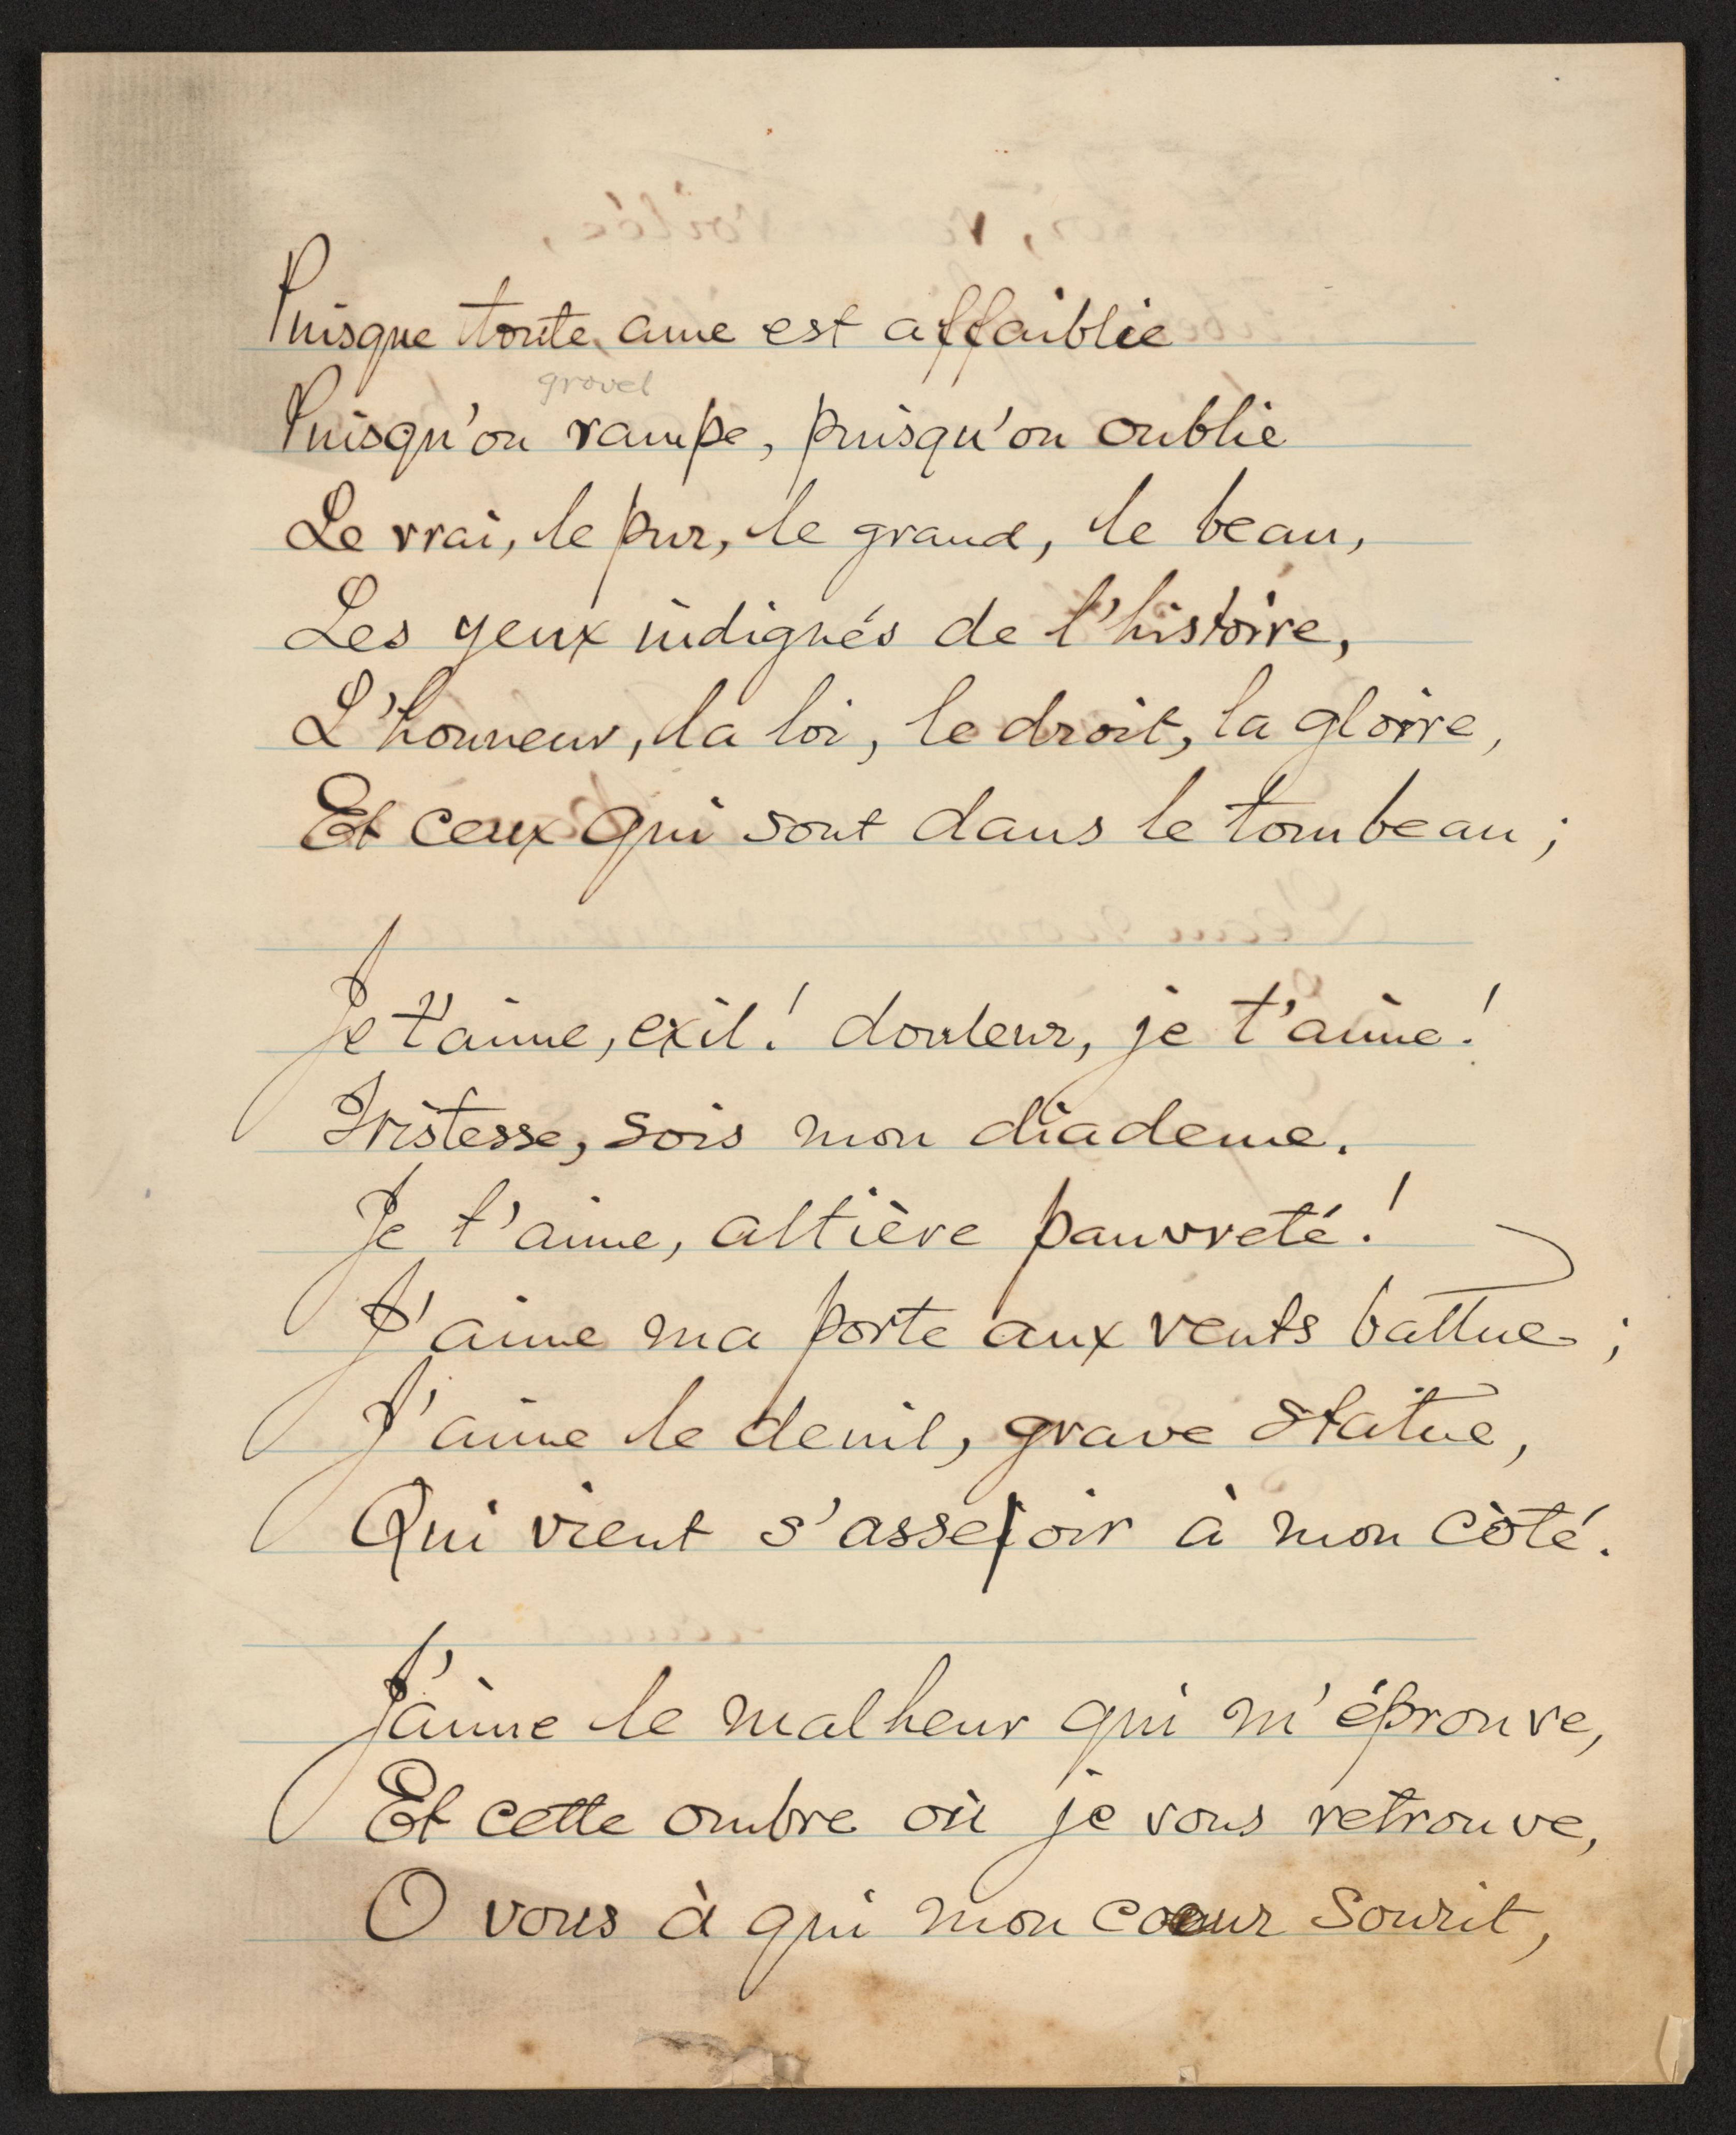 Puisque toute ame est affaiblie
grovel
Puisqu'on rampe, puisqu'on oublie
Le vrai, le pur, le grand, le beau,
Les yeux indignés de l'histoire,
L'honneur, la loi, le droit, la gloire,
Et ceux qui sont dans le tombeau;
Je t'aime, exil! douleur, je t'aime!
Tristesse, sois mon diademe.
Je t'aime, altière pauvreté!
J'aime ma porte aux vents battue;
J'aime le deuil, grave statue,
Qui vient s'asseoir à mon côté.
J'aime le malheur qui m'éprouve,
Et cette ombre où je vous retrouve,
O vous à qui mon coeur sourit,